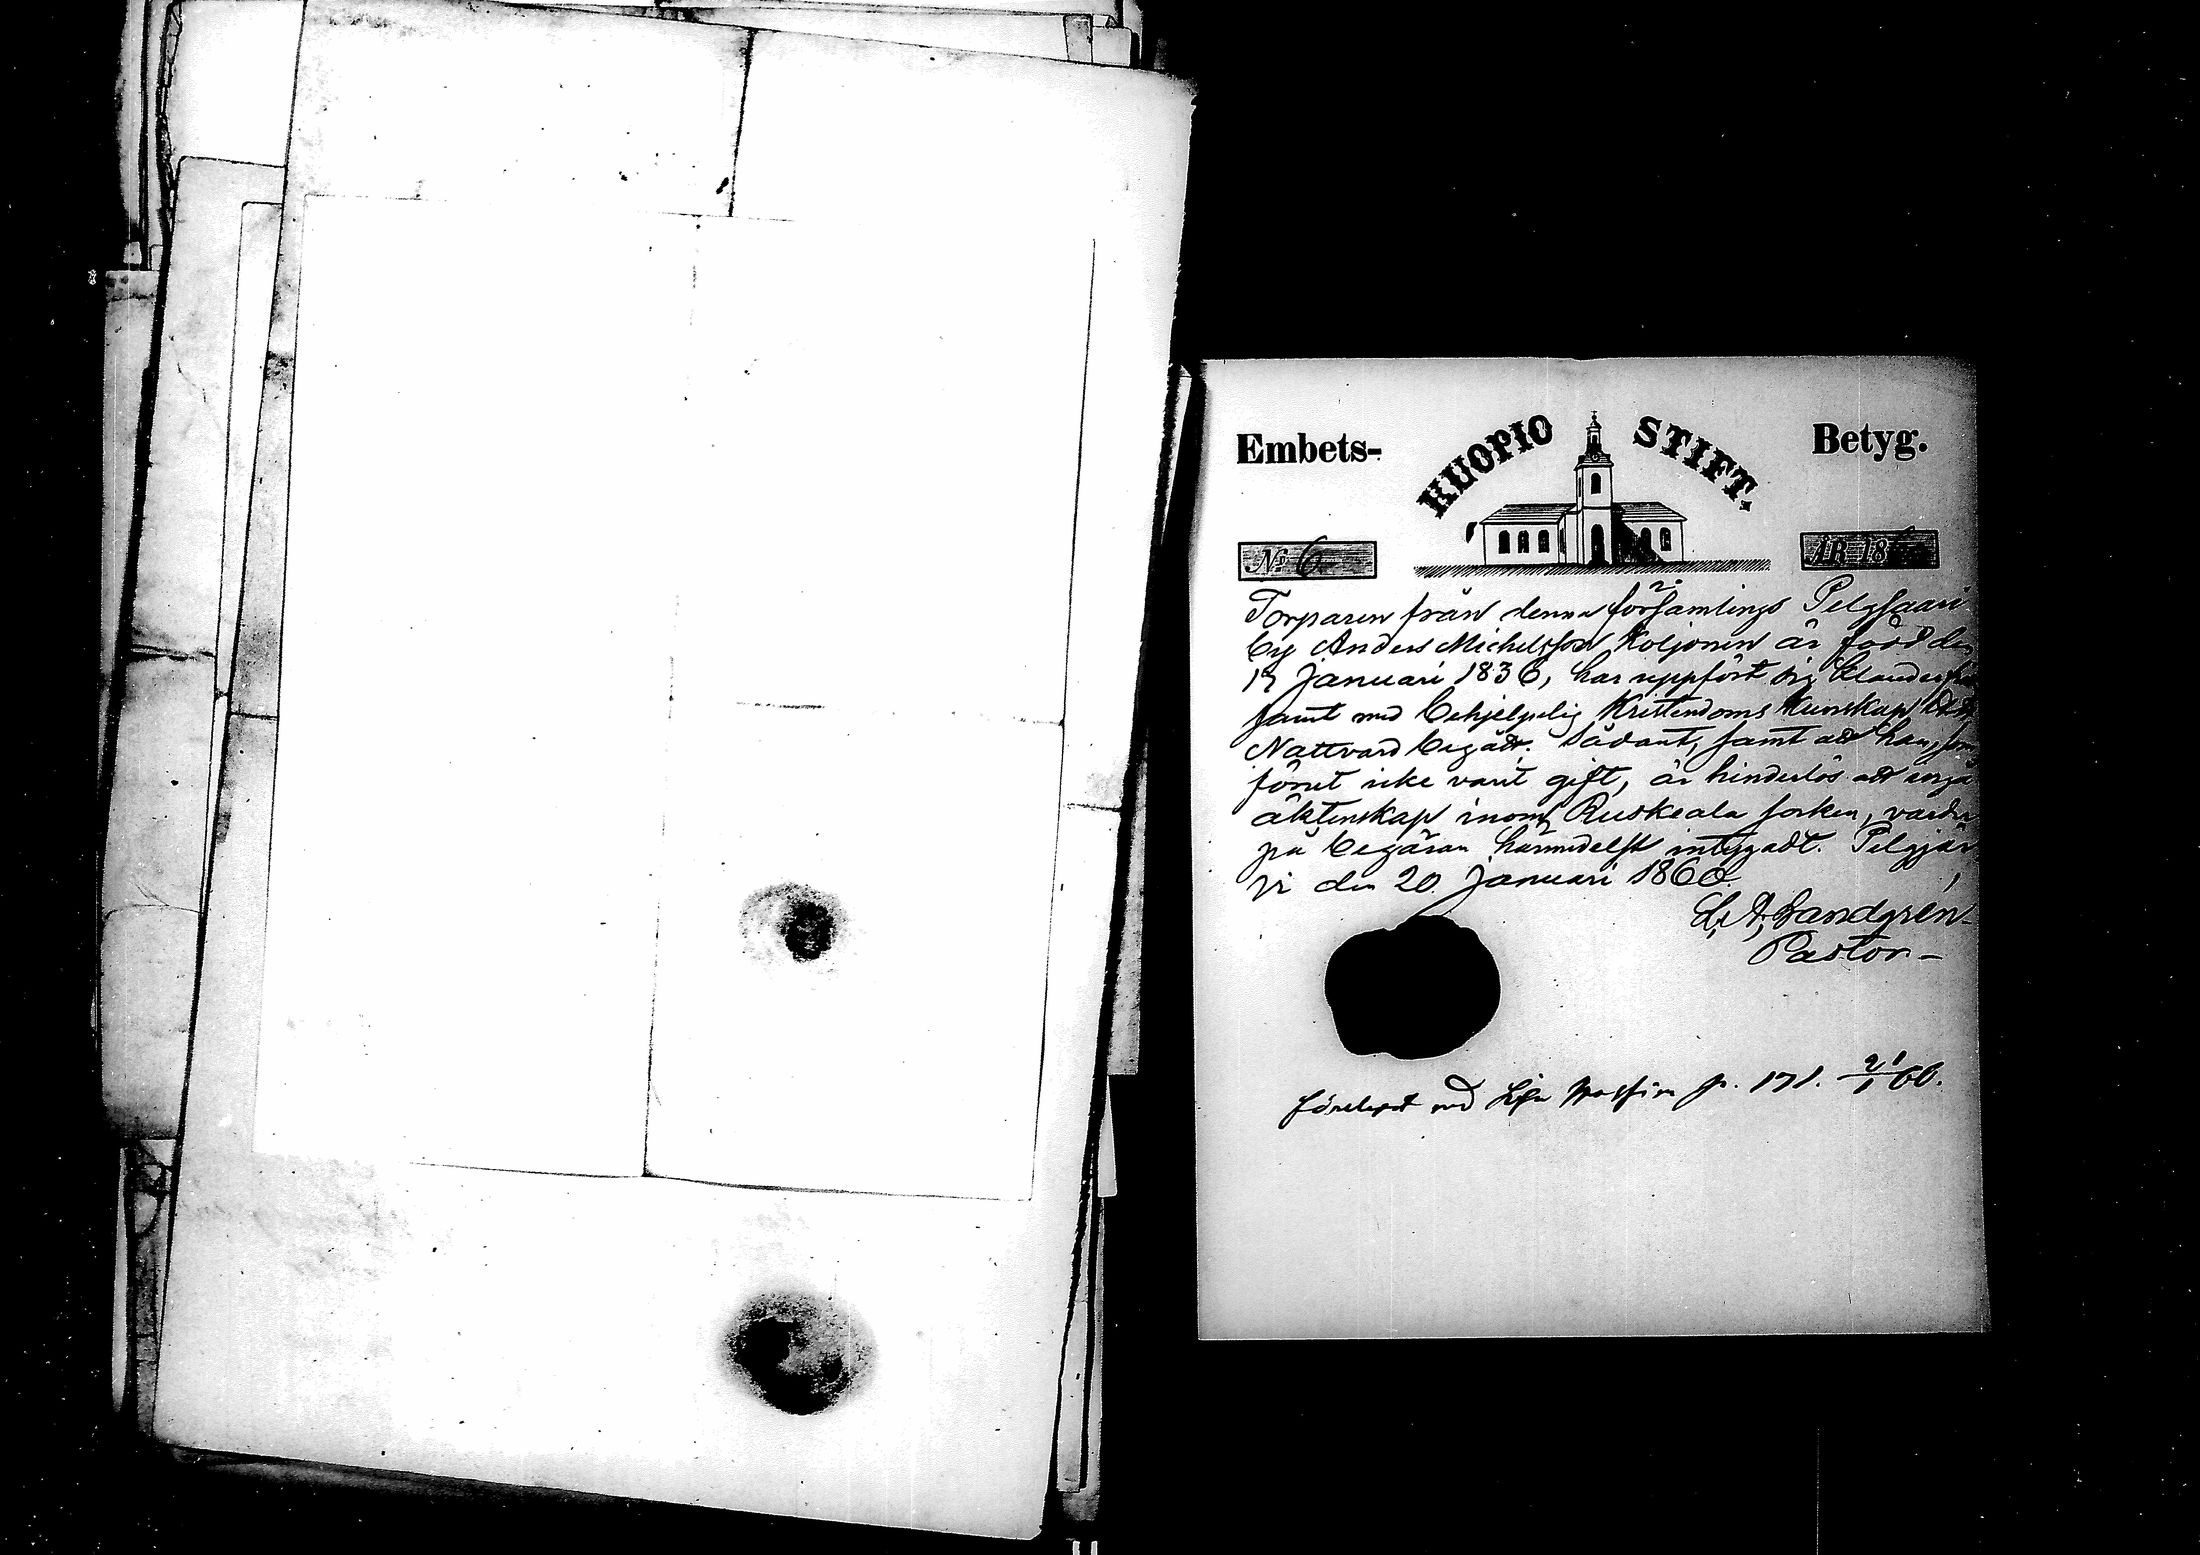 Embets- KUOPIO STIFT. Betyg.
No 6 ÅR 18
Torparen från denna församlings Pelgsaari
by Anders Michelsson Koljonen är född den
17 Januari 1836, har uppfört sig klanderfri
samt med behjelpelig Kristendoms Kunskap
Nattvard begådt. Sådant, samt att han, som
förut icke varit gift, är hinderlös att ingå
äktenskap inom Ruskeala socken, varder
på begäran härmedelst intygadt. Pelgjär
vi den 20 Januari 1860.
L. A. Sandgrén
Pastor-
med p. 171. 21/1 60.